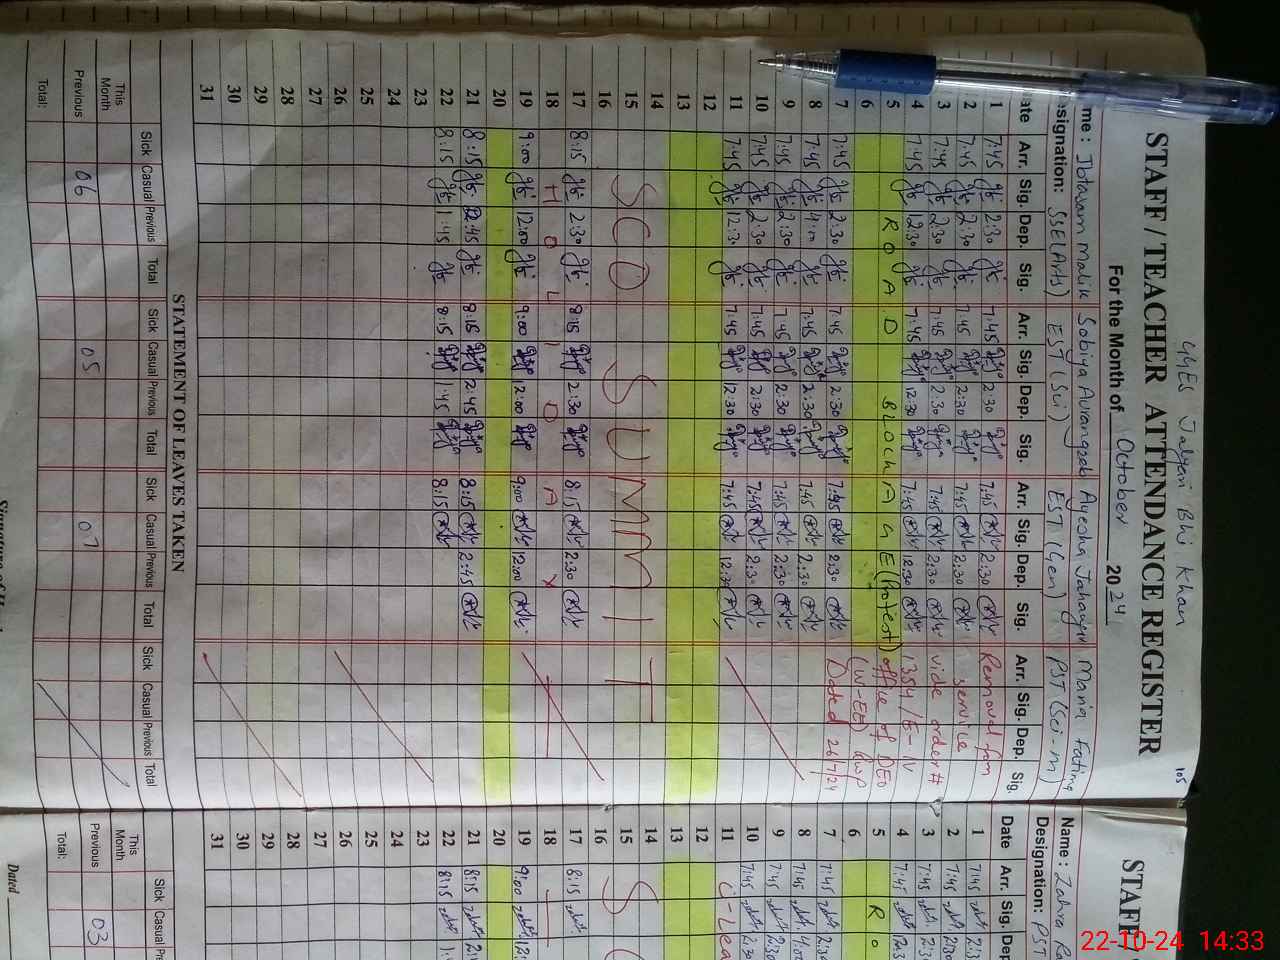 GGES Jalyari Bhi Khan
105
STAFF / TEACHER ATTENDANCE REGISTER
For the Month of October 2024
me : Ibtasam Malik Sobiya Aurangzeb Ayesha Jahangir Maria Fatima
esignation: SSE(Arts) EST (Sci) EST (Gen) PST (Sci-m)
ate Arr. Sig. Dep. Sig. Arr. Sig. Dep. Sig. Arr. Sig. Dep. Sig. Arr. Sig. Dep. Sig.
1 7:45 2:30 7:45 2:30 7:45 2:30 Removal from
2 7:45 2:30 7:45 2:30 7:45 2:30 service
3 7:45 2:30 7:45 2:30 7:45 2:30 vide order #
4 7:45 12:30 7:45 12:30 7:45 12:30 1354/E-IV
5 ROAD BLOCKAGE (Protest) office of DEO
6 (W-EE) Rwp
7 7:45 2:30 7:45 2:30 7:45 2:30 Dated 26/7/24
8 7:45 4:00 7:45 2:30 7:45 2:30
9 7:45 2:30 7:45 2:30 7:45 2:30
10 7:45 2:30 7:45 2:30 7:45 2:30
11 7:45 12:30 7:45 12:30 7:45 12:30
12
13
14
15 SCO SUMMIT
16
17 8:15 2:30 8:15 2:30 8:15 2:30
18 HOLIDAY
19 9:00 12:00 9:00 12:00 9:00 12:00
20
21 8:15 2:45 8:15 2:45 8:15 2:45
22 8:15 1:45 8:15 1:45 8:15
23
24
25
26
27
28
29
30
31
STATEMENT OF LEAVES TAKEN
Sick Casual Previous Total Sick Casual Previous Total Sick Casual Previous Total Sick Casual Previous Total
This Month
Previous 06 05 07
Total:
STAFF
Name : Zahra
Designation: PST
Date Arr. Sig. Dep
1 7:45
2 7:45 2:30
3 7:45
4 7:45
5 RO
6
7 7:45
8 7:45 4:00
9 7:45 2:30
10 7:45 2:30
11
12
13
14
15 S
16
17 8:15
18
19 9:00 12:
20
21 8:15
22 8:15
23
24
25
26
27
28
29
30
31
Sick Casual Pre
This Month
Previous 03
Total:
Dated
22-10-24 14:33